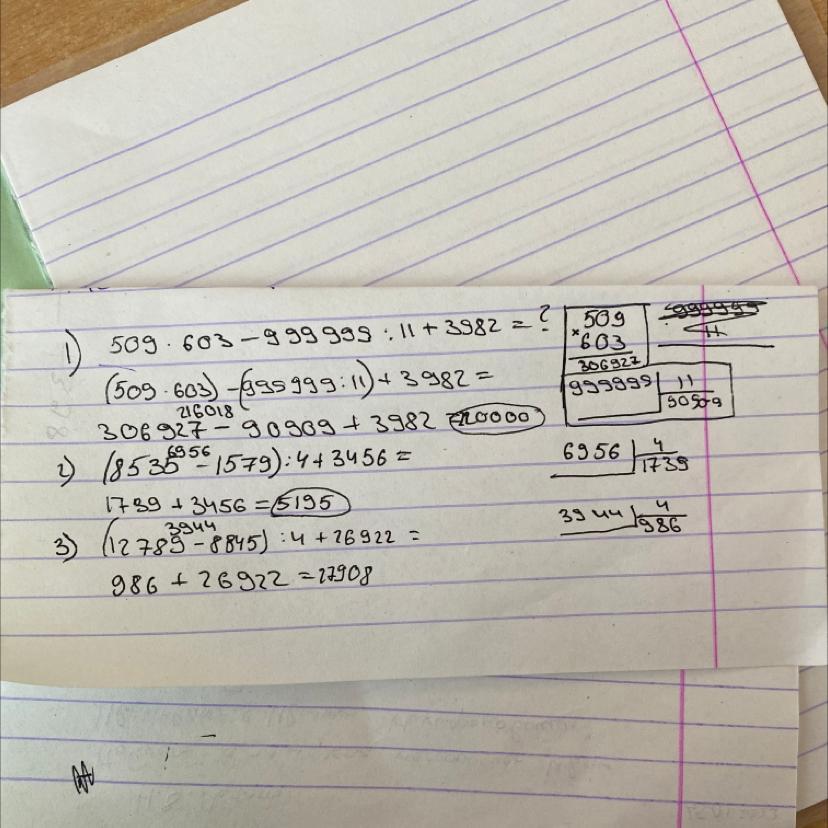 1) 509 · 603 - 999999 : 11 + 3982 = ?
(509 · 603) - (999999 : 11) + 3982 =
216018
306927 - 90909 + 3982 = 220000
6956
2) (8535 - 1579) : 4 + 3456 =
1739 + 3456 = 5195
3944
3) (12789 - 8845) : 4 + 26922 =
986 + 26922 = 27908
509
× 603
306927
999999 11
90909
6956 4
1739
3944 4
986